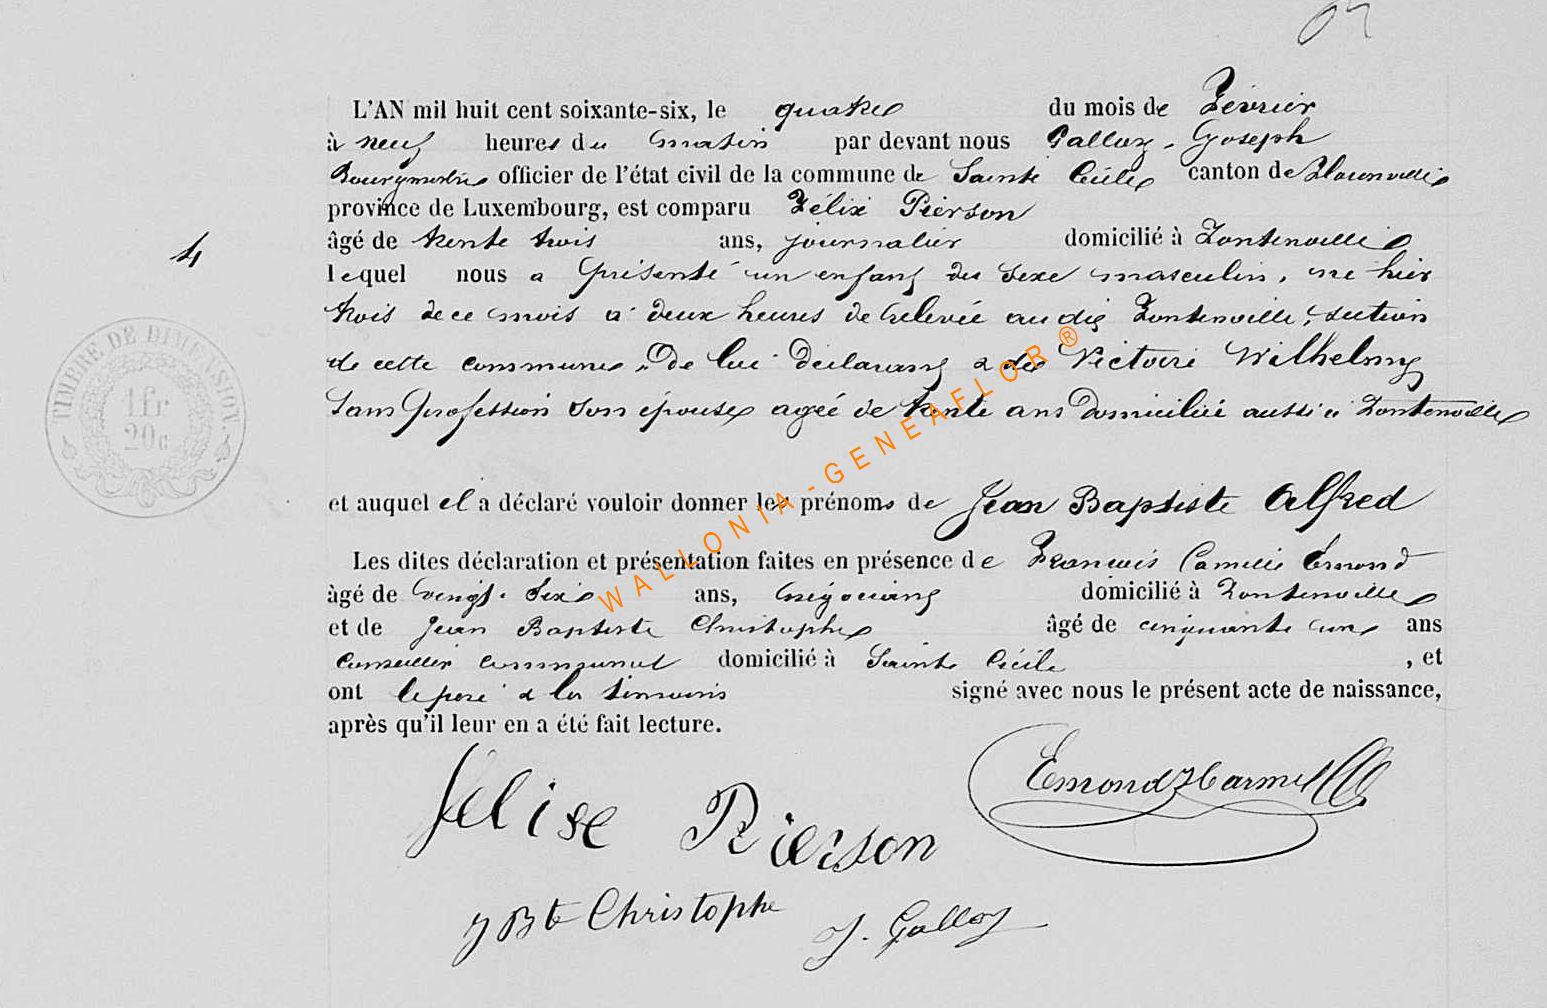 L'AN mil huit cent soixante-six, le quatre du mois de Février
à neuf heures du matin par devant nous Galloy Joseph
Bourgmestre officier de l'état civil de la commune de Sainte Cécile canton de Florenville
province de Luxembourg, est comparu Félix Pierson
4
âgé de trente trois ans, journalier domicilié à Fontenoille
lequel nous a présenté un enfant du sexe masculin, né hier
trois de ce mois à deux heures de relevée au dit Fontenoille, section
de cette commune, De lui déclarant & de Victoire Wilhelmy
Sans profession son épouse agée de trente ans Domiciliée aussi à Fontenoille
TIMBRE DE DIMENSION
1 fr
20c
et auquel il a déclaré vouloir donner les prénoms de Jean Baptiste Alfred
Les dites déclaration et présentation faites en présence de François Camille Emond
âgé de vingt-six ans, négociant domicilié à Fontenoille
et de Jean Baptiste Christophe âgé de cinquante un ans
Conseiller communal domicilié à Sainte Cécile , et
ont le père & les témoins signé avec nous le présent acte de naissance,
après qu'il leur en a été fait lecture.
WALLONIA-GENEAFLOR®
Felixe Pierson
J Bte Christophe
J. Galloy